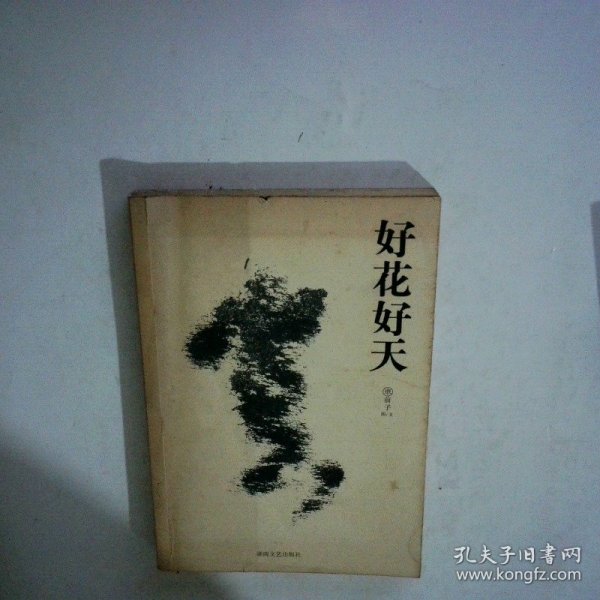 好花好天
湖南文艺出版社
孔夫子旧书网
www.kongfz.com